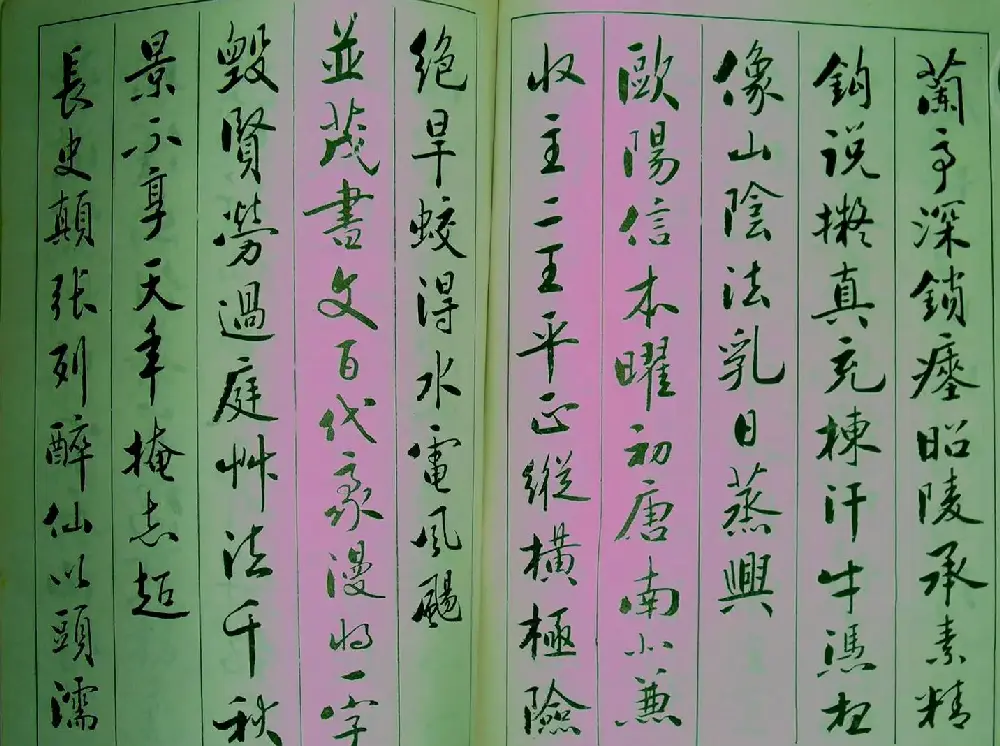 蘭亭深鎖瘞昭陵承素精
鈎说擬真充棟汗牛馮想
像山陰法乳日蒸興
歐陽信本曜初唐南北兼
收主二王平正縱橫極險
絶旱蛟得水電風颺
並茂書文百代豪漫將一字
毀賢勞過庭艸法千秋
景不享天年掩志超
長史顛张列醉仙以頭濡